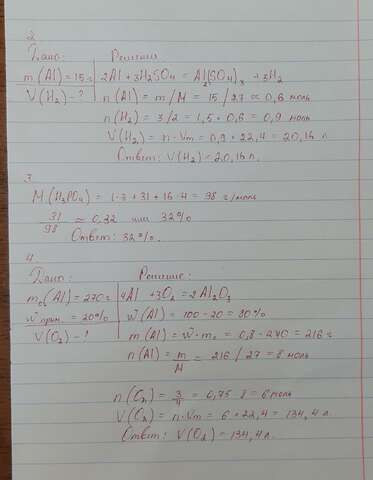 2.
Дано: Решение
m(Al) = 15 г 2Al + 3H₂SO₄ = Al₂(SO₄)₃ + 3H₂
V(H₂) - ? n(Al) = m/M = 15/27 ≈ 0,6 моль
n(H₂) = 3/2 = 1,5 · 0,6 = 0,9 моль
V(H₂) = n · Vm = 0,9 · 22,4 = 20,16 л.
Ответ: V(H₂) = 20,16 л.
3.
M(H₃PO₄) = 1·3 + 31 + 16·4 = 98 г/моль
31/98 ≈ 0,32 или 32%
Ответ: 32%.
4.
Дано: Решение:
m₀(Al) = 270 г 4Al + 3O₂ = 2Al₂O₃
W прим. = 20% W(Al) = 100 - 20 = 80%
V(O₂) - ? m(Al) = W · m₀ = 0,8 · 270 = 216 г
n(Al) = m/M = 216/27 = 8 моль
n(O₂) = 3/4 = 0,75 · 8 = 6 моль
V(O₂) = n · Vm = 6 · 22,4 = 134,4 л.
Ответ: V(O₂) = 134,4 л.